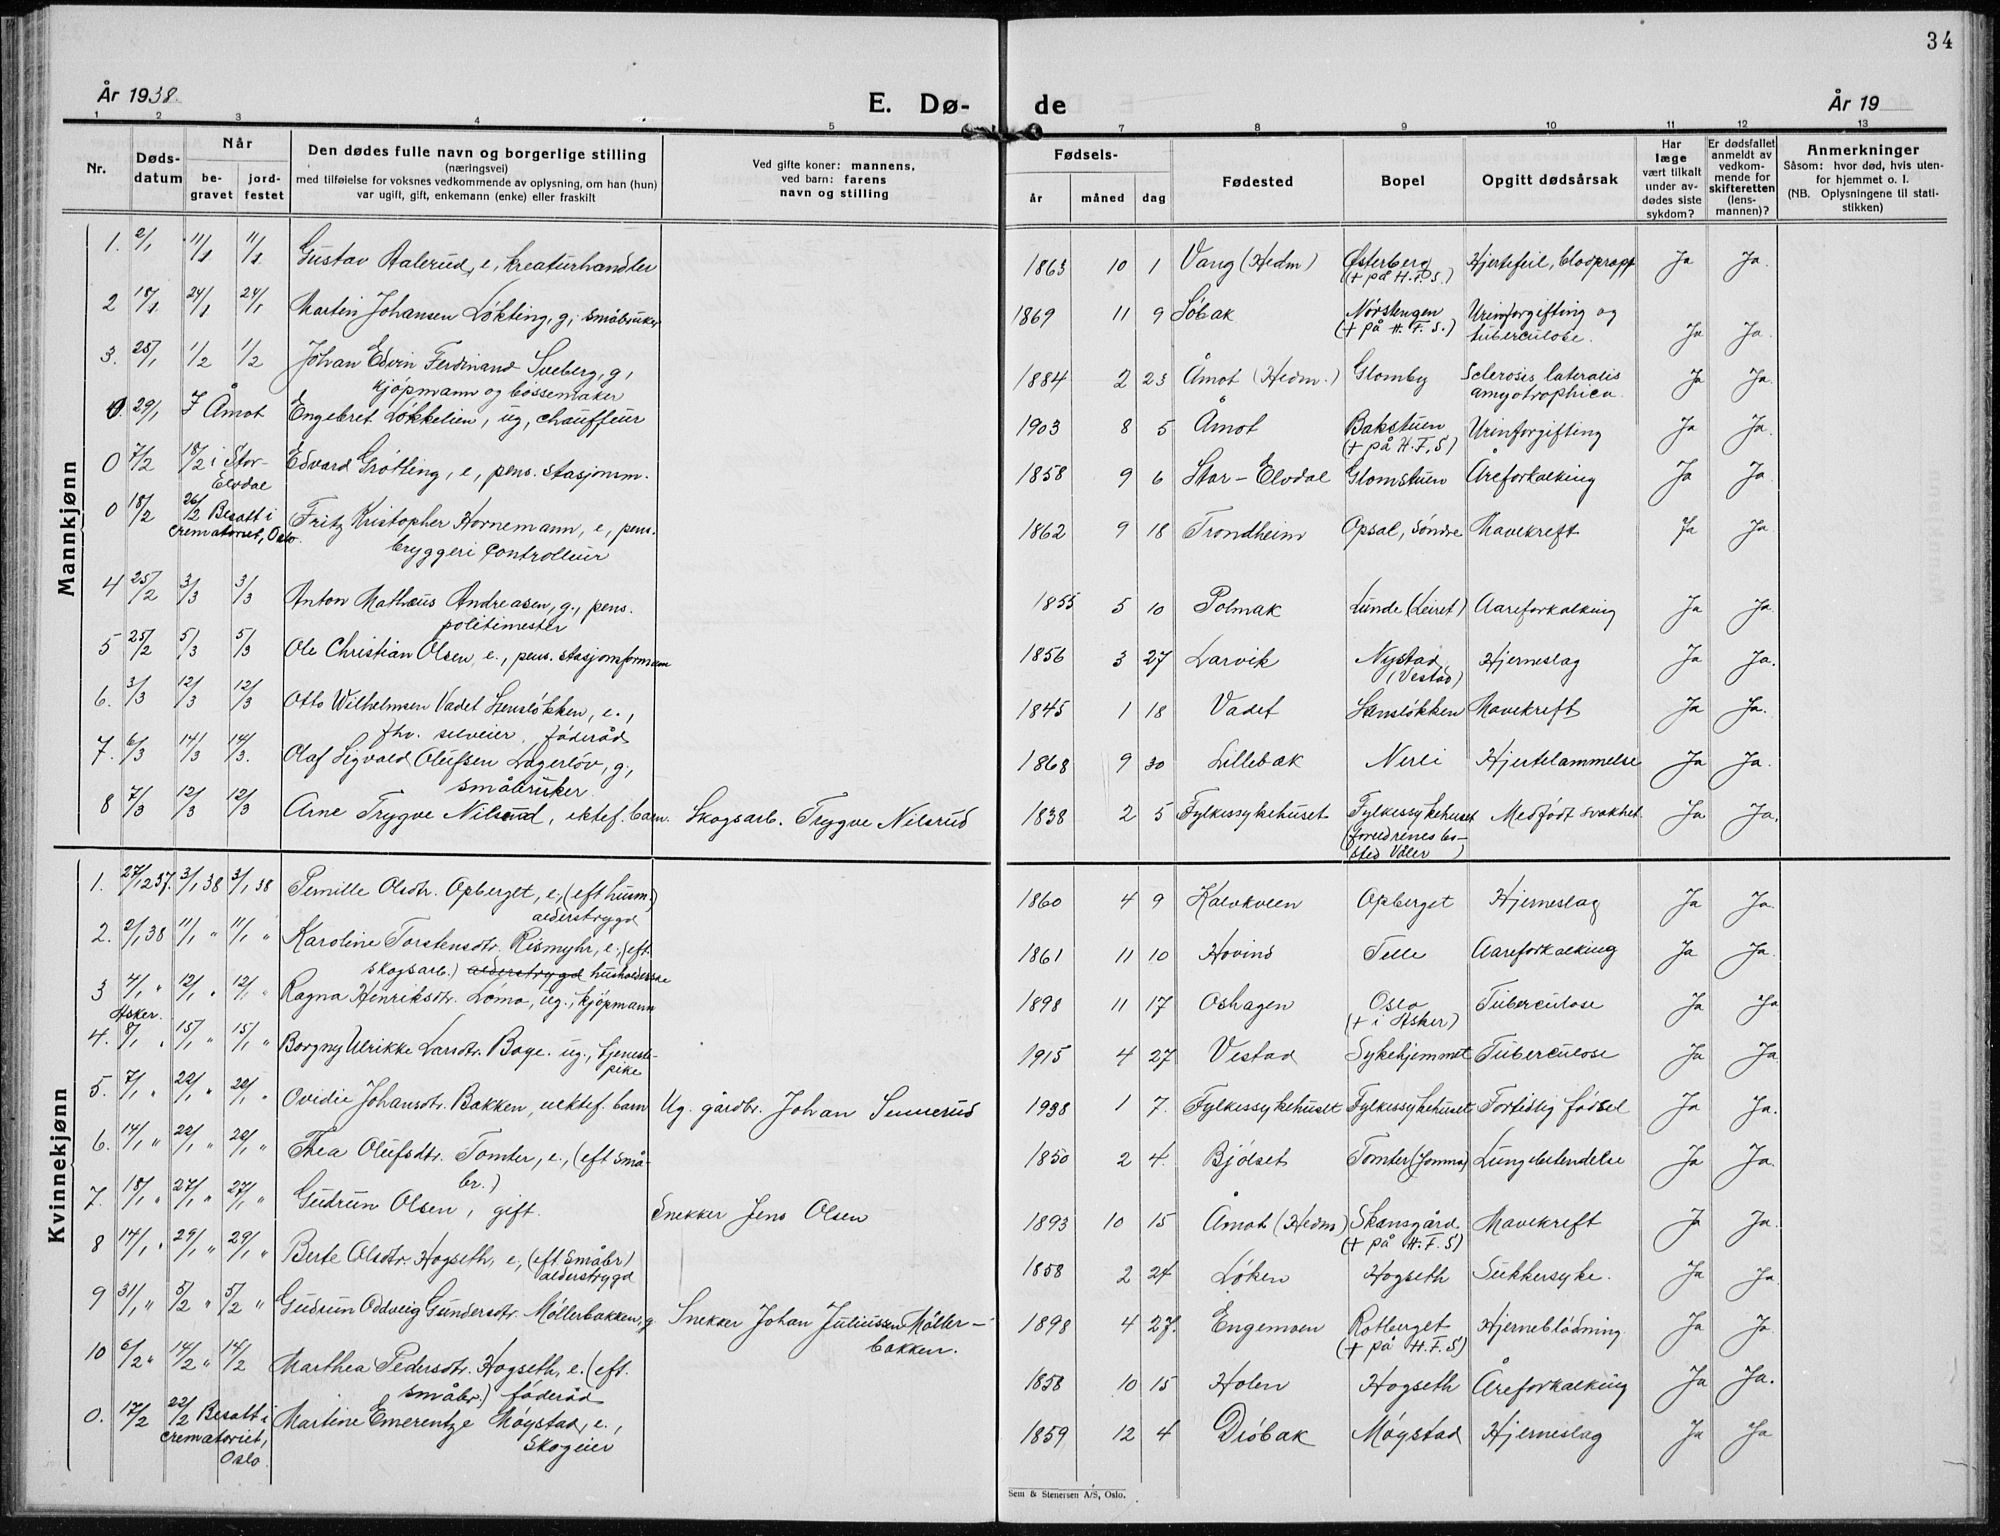 34
År 1938.
E. Dø-
de
År 19
1 2 3 4 5 7 8 9 10 11 12 13
Nr.
Døds-
datum
Når
be-
gravet
jord-
festet
Den dødes fulle navn og borgerlige stilling
(næringsvei)
med tilføielse for voksnes vedkommende av oplysning, om han (hun)
var ugift, gift, enkemann (enke) eller fraskilt
Ved gifte koner: mannens,
ved barn: farens
navn og stilling
Fødsels-
år måned dag
Fødested
Bopel
Opgitt dødsårsak
Har
læge
vært tilkalt
under av-
dødes siste
sykdom?
Er dødsfallet
anmeldt av
vedkom-
mende for
skifteretten
(lens-
mannen)?
Anmerkninger
Såsom: hvor død, hvis uten-
for hjemmet o. l.
(NB. Oplysningene til stati-
stikken)
Mannkjønn
1. 2/1 11/1 11/1 Gustav Aalerud, e, kreaturhandler 1863 10 1 Vang (Hedm) Østerberg Hjertefeil, blodpropp Ja Ja.
(+ på H.F.S.)
2 18/1 24/1 24/1 Martin Johansen Løkting, g, småbruker 1869 11 9 Søbak Nørstengen Urinforgifting og
(+ på H.F.S.) tuberculose. Ja Ja.
3. 25/1 1/2 1/2 Johan Edvin Ferdinand Sveberg, g, 1884 2 23 Åmot (Hedm.) Glomby Sclerosis lateralis Ja Ja.
kjøpmann og bøssemaker amyotrophica.
0. 29/1 F Åmot Engebret Løkkelien, ug, chauffeur 1903 8 5 Åmot Bakstuen Urinforgifting Ja Ja.
(+ på H.F.S)
0 7/2 18/2 i Stor- Edvard Grøtting, e, pens. stasjonsm. 1858 9 6 Stor-Elvdal Glomstuen Åreforkalking Ja Ja.
Elvdal
0 18/2 26/2 Besatt i Fritz Kristopher Hornemann, e, pens. 1862 9 18 Trondheim Opsal, Søndre Mavekreft Ja Ja.
crematoriet, Oslo. bryggeri controlleur
4 25/2 3/3 3/3 Anton Mathæus Andreasen, g., pens. 1855 5 10 Polmak Lunde (Leiret) Aareforkalking Ja Ja.
politimester
5 25/2 5/3 5/3 Ole Christian Olsen, e., pens. stasjonsformann 1856 3 27 Larvik Nystad, Hjerneslag Ja Ja.
(Vestad)
6. 3/3 12/3 12/3 Otto Wilhelmsen Vadet Stensløkken, e., 1845 1 18 Vadet Stensløkken Mavekreft Ja Ja.
fhv. selveier, føderåd
7. 6/3 14/3 14/3. Olaf Sigvald Olufsen Lagerløv, g, 1868 9 30 Lillebæk Nerli Hjertelammelse Ja Ja.
småbruker.
8 7/3 12/3 12/3 Arne Trygve Nilsrud, ektef. barn. Skogsarb. Trygve Nilsrud 1838 2 5 Fylkessykehuset Fylkessykehuset Medfødt svakhet. Ja Ja.
(foreldrenes bo-
sted Våler)
Kvinnekjønn
1. 27/12 37. 3/1 38 3/1 38 Pernille Olsdtr. Opberget, e, (eft husm.) 1860 4 9 Kalvkveen Opberget Hjerneslag Ja Ja.
alderstrygd
2. 2/1 38 11/1 " 11/1 " Karoline Torstensdtr. Rismyhr, e, (eft. 1861 11 10 Hovind Telle Aareforkalking Ja Ja.
skogsarb.) alderstrygd husholderske
3 4/1 " 12/1 " 12/1 " Ragna Henriksdtr. Lömo, ug., kjöpmann 1898 11 17 Oshagen Oslo Tuberculose Ja Ja
Asker. (+ i Asker)
4. 8/1 " 15/1 " 15/1 " Borgny Ulrikke Larsdtr. Boge. ug., tjeneste- 1915 4 27 Vestad Sykehjemmet Tuberculose Ja Ja
pike
5. 7/1 " 22/1 " 22/1 " Ovidie Johansdtr. Bakken, uektef. barn Ug. gårdbr. Johan Sennerud 1938 1 7. Fylkessykehuset Fylkessykehuset Fortidlig fødsel Ja Ja.
6. 14/1 " 22/1 " 22/1 " Thea Olufsdtr. Tomter, e., (eft små- 1850 2 4. Bjölset Tomter (Jomna) Lungebetendelse Ja Ja.
br.)
7. 18/1 " 27/1 " 27/1 " Gudrun Olsen, gift. Snekker Jens Olsen 1893 10 15 Åmot (Hedm) Skansgård Mavekreft Ja Ja.
(+ på H.F.S)
8 14/1 " 29/1 " 29/1 " Berte Olsdtr. Hogseth, e, (eft. småbr) 1858 2 24 Løken Hogseth Sukkersyke. Ja Ja.
alderstrygd
9 31/1 " 5/2 " 5/2 " Gudrun Oddveig Gundersdtr. Møllerbakken, g Snekker Johan Juliussen Møller- 1898 4 27. Engemoen Rotberget Hjerneblödning. Ja Ja
bakken. (+ på H.F.S)
10 6/2 " 14/2 " 14/2 Marthea Pedersdtr. Hogseth, e. (eft. 1858 10 15 Holen Hogseth Åreforkalking Ja Ja.
småbr.) føderåd
0. 17/2 22/2 Besatt i Martine Emerentze Møystad, e., 1859 12 4 Dröbak Møystad Hjerneslag Ja Ja
crematoriet, Skogeier
Oslo.
Sem & Stenersen A/S, Oslo.